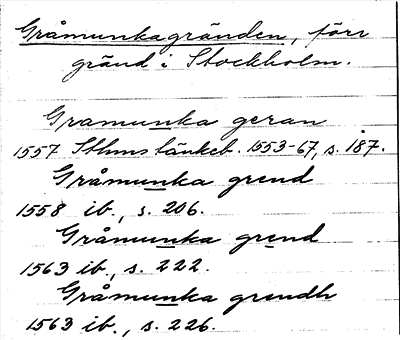 Gråmunkagränden, förr
gränd i Stockholm.
Gramunka geran
1557 Sthms tänkeb. 1553-67, s. 187.
Gråmunka grend
1558 ib., s. 206.
Gråmunka grend
1563 ib., s. 222.
Gråmunka grendh
1563 ib., s. 226.